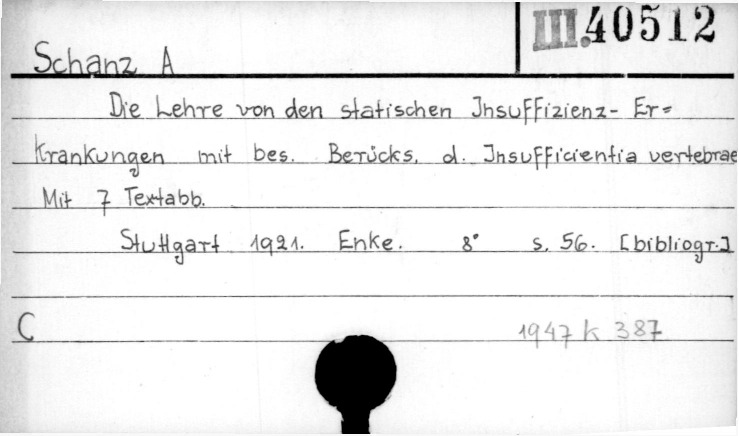 III.40512
Schanz A
Die Lehre von den statischen Jnsuffizienz- Er=
krankungen mit bes. Berücks. d. Jnsufficientia vertebrae
Mit 7 Textabb.
Stuttgart 1921. Enke. 8° s. 56. [bibliogr.]
C
1947 k 387